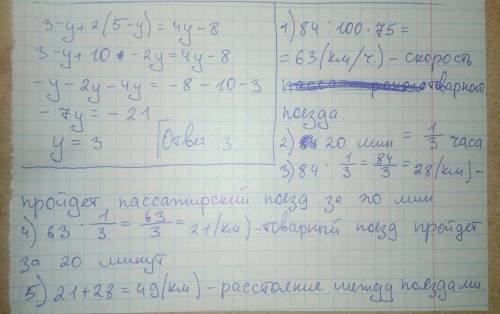 3-y+2(5-y)=4y-8
3-y+10-2y=4y-8
-y-2y-4y=-8-10-3
-7y=-21
y=3 Ответ 3
1) 84:100·75=
=63(км/ч.)-скорость
товарного
поезда.
2) 20 мин = 1/3 часа
3) 84·1/3=84/3=28(км)-
пройдет пассажирский поезд за 20 мин
4) 63·1/3=63/3=21(км)-товарный поезд пройдет
за 20 минут
5) 21+28=49(км)-расстояние между поездами